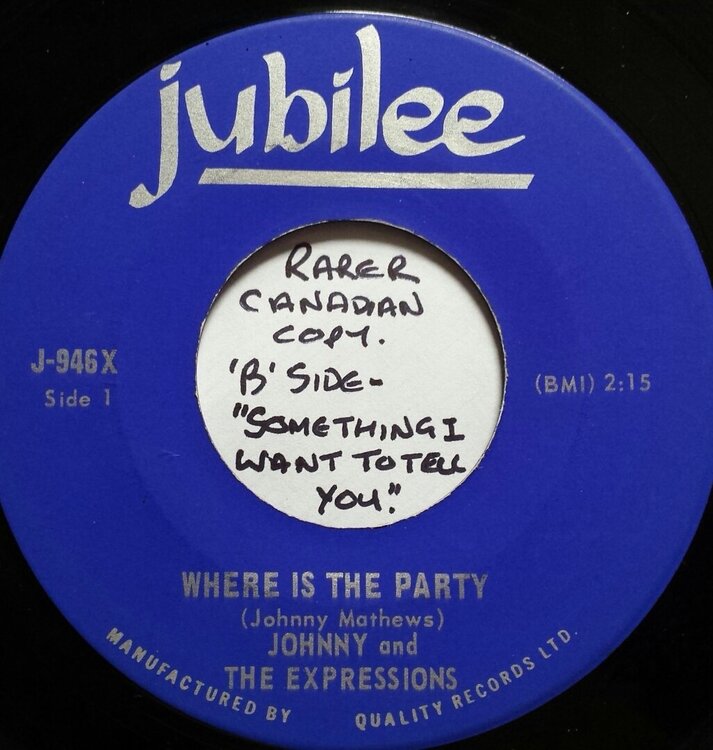 jubilee
RARER
CANADIAN
COPY.
'B' SIDE-
"SOMETHING I
WANT TO TELL
YOU."
J-946X
Side 1
(BMI) 2:15
WHERE IS THE PARTY
(Johnny Mathews)
JOHNNY and
THE EXPRESSIONS
MANUFACTURED BY QUALITY RECORDS LTD.